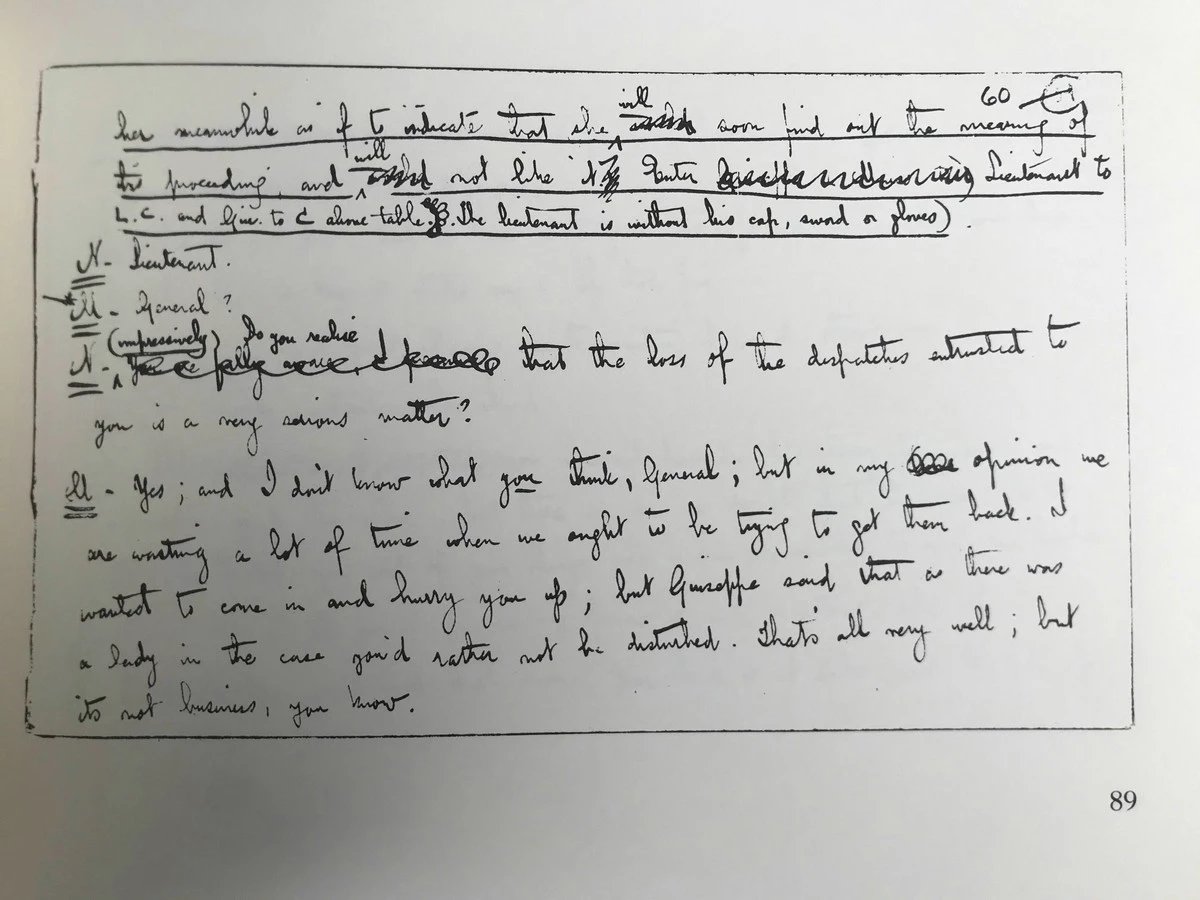 60
her meanwhile as if to indicate that she will soon find out the meaning of
this proceeding, and will not like it. Enter Lieutenant to
L.C. and Giu. to C above table. The lieutenant is without his cap, sword or gloves)
N- Lieutenant.
- General?
(impressively) Do you realise
N- that the loss of the dispatches entrusted to
you is a very serious matter?
- Yes; and I don't know what you think, General; but in my opinion we
are wasting a lot of time when we ought to be trying to get them back. I
wanted to come in and hurry you up; but Guiseppe said that as there was
a lady in the case you'd rather not be disturbed. That's all very well; but
its not business, you know.
89